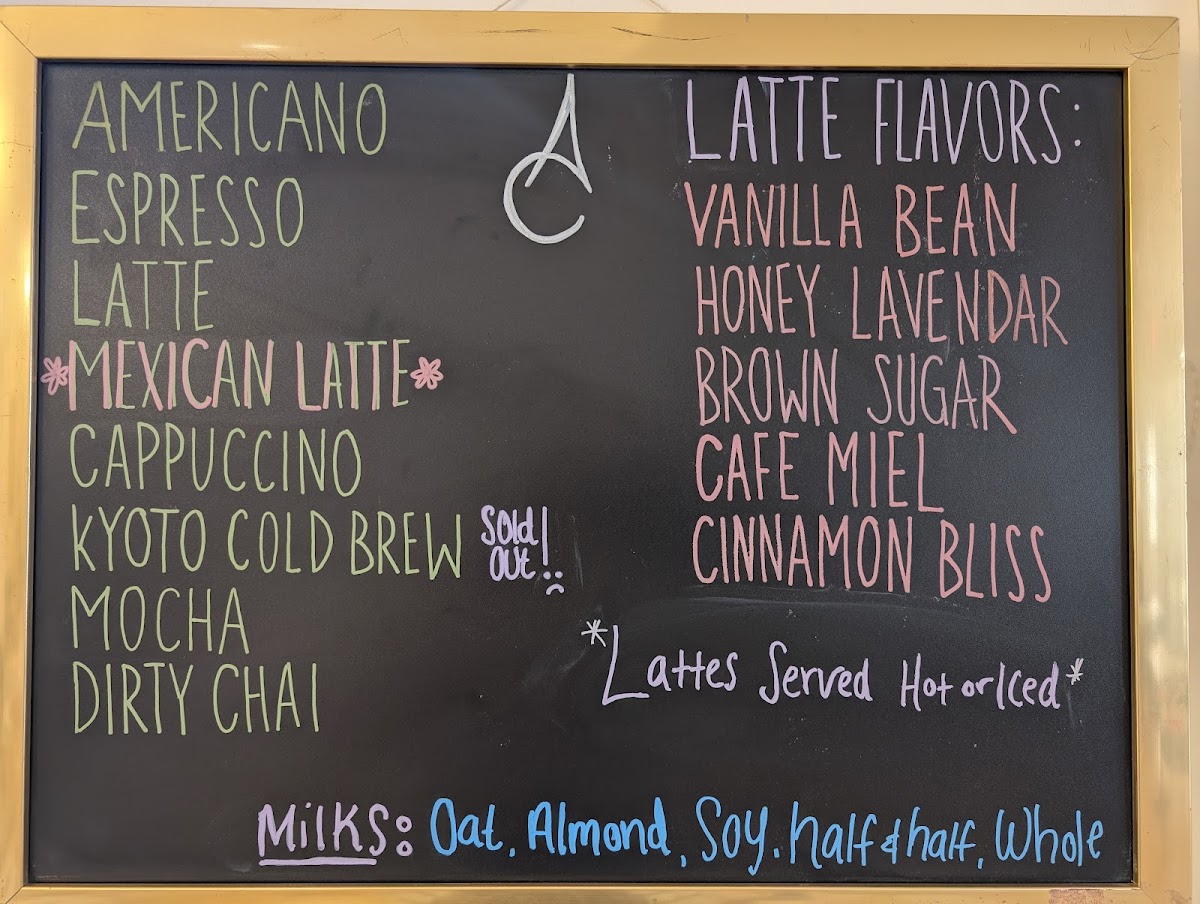 AMERICANO
ESPRESSO
LATTE
*MEXICAN LATTE*
CAPPUCCINO
KYOTO COLD BREW Sold
OUT!
MOCHA
DIRTY CHAI
LATTE FLAVORS:
VANILLA BEAN
HONEY LAVENDAR
BROWN SUGAR
CAFE MIEL
CINNAMON BLISS
*Lattes Served Hot or Iced*
Milks: Oat, Almond, Soy, half & half, Whole